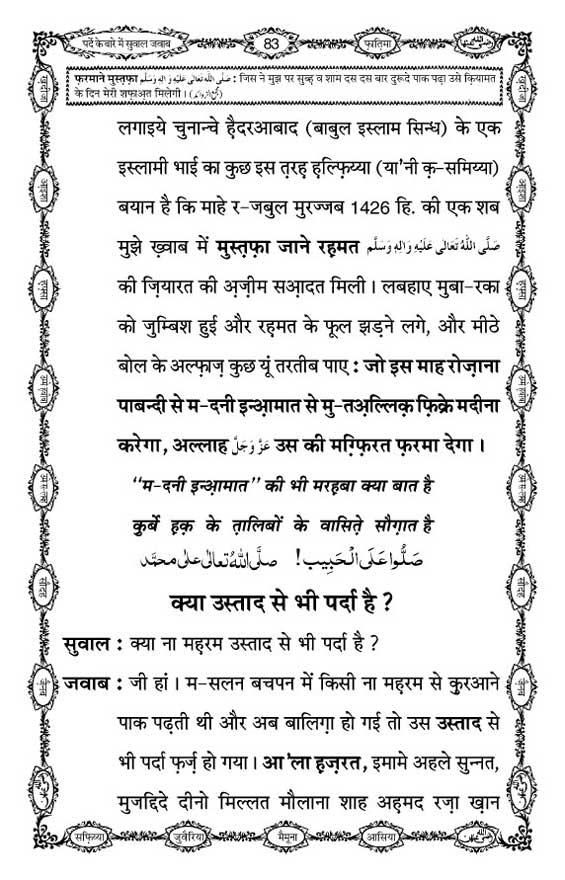 पर्दे के बारे में सुवाल जवाब
83
फ़ातिमा
फ़रमाने मुस्तफ़ा صَلَّى اللّٰهُ تَعَالٰى عَلَيْهِ وَاٰلِهٖ وَسَلَّم : जिस ने मुझ पर सुब्ह व शाम दस दस बार दुरूदे पाक पढ़ा उसे क़ियामत
के दिन मेरी शफ़ाअ़त मिलेगी।
लगाइये चुनान्चे हैदरआबाद (बाबुल इस्लाम सिन्ध) के एक
इस्लामी भाई का कुछ इस त़रह ह़ल्फ़िय्या (या'नी क़-समिय्या)
बयान है कि माहे र-जबुल मुरज्जब 1426 हि. की एक शब
मुझे ख़्वाब में मुस्त़फ़ा जाने रह़मत صَلَّى اللّٰهُ تَعَالٰى عَلَيْهِ وَاٰلِهٖ وَسَلَّم
की ज़ियारत की अ़ज़ीम सआ़दत मिली। लबहाए मुबा-रका
को जुम्बिश हुई और रहमत के फूल झड़ने लगे, और मीठे
बोल के अल्फ़ाज़ कुछ यूं तरतीब पाए : जो इस माह रोज़ाना
पाबन्दी से म-दनी इन्आ़मात से मु-तअ़ल्लिक़ फ़िक्रे मदीना
करेगा, अल्लाह عَزَّ وَجَلَّ उस की मग़्फ़िरत फ़रमा देगा।
“म-दनी इन्आ़मात” की भी मरह़बा क्या बात है
कुर्बे ह़क़ के त़ालिबों के वासित़े सौग़ात है
صَلُّوا عَلَى الْحَبِيب! صلَّى اللهُ تعالى على محمَّد
क्या उस्ताद से भी पर्दा है ?
सुवाल : क्या ना महरम उस्ताद से भी पर्दा है ?
जवाब : जी हां। म-सलन बचपन में किसी ना महरम से कुरआने
पाक पढ़ती थी और अब बालिग़ा हो गई तो उस उस्ताद से
भी पर्दा फ़र्ज़ हो गया। आ'ला ह़ज़रत, इमामे अहले सुन्नत,
मुजद्दिदे दीनो मिल्लत मौलाना शाह अह़मद रज़ा ख़ान
सफ़िय्या
जुवैरिया
मैमूना
आसिया